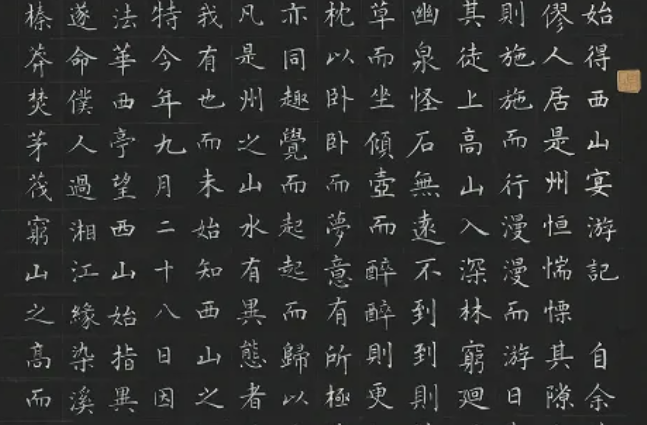 始得西山宴游記 自余
僇人居是州恒惴慄其隙
則施施而行漫漫而游日
其徒上高山入深林窮廻
幽泉怪石無遠不到到則
草而坐傾壺而醉醉則更
枕以卧卧而夢意有所極
亦同趣覺而起起而歸以
凡是州之山水有異態者
我有也而未始知西山之
特今年九月二十八日因
法華西亭望西山始指異
遂命僕人過湘江緣染溪
榛莽焚茅茷窮山之高而